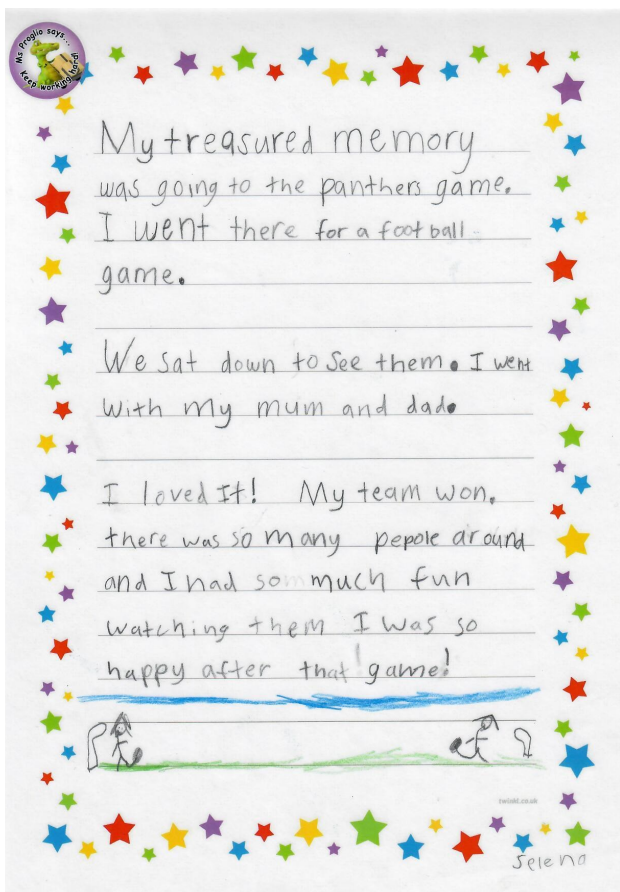 Ms Proglio says...
Keep working hard!
My treasured memory
was going to the panthers game.
I went there for a football
game.
We sat down to see them. I went
with my mum and dad.
I loved It! My team won.
there was so many pepole around
and I had so much fun
watching them I was so
happy after that game!
twinkl.co.uk
Selena